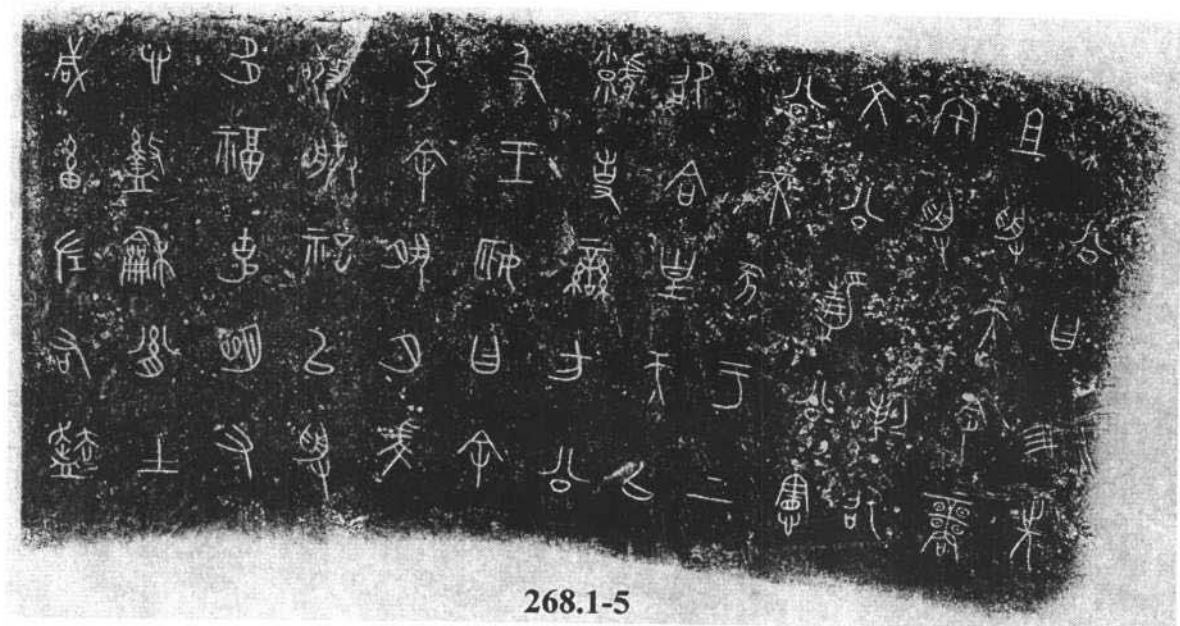 公曰我先
且受天命商
宅受剌卲
文公静公憲
公不彖于上
卲合皇天以
虩事蠻方公
及王姬曰余
小子余夙夕虔
敬朕祀以受
多福克明又
心盭龢胤士
咸畜左右
268.1-5